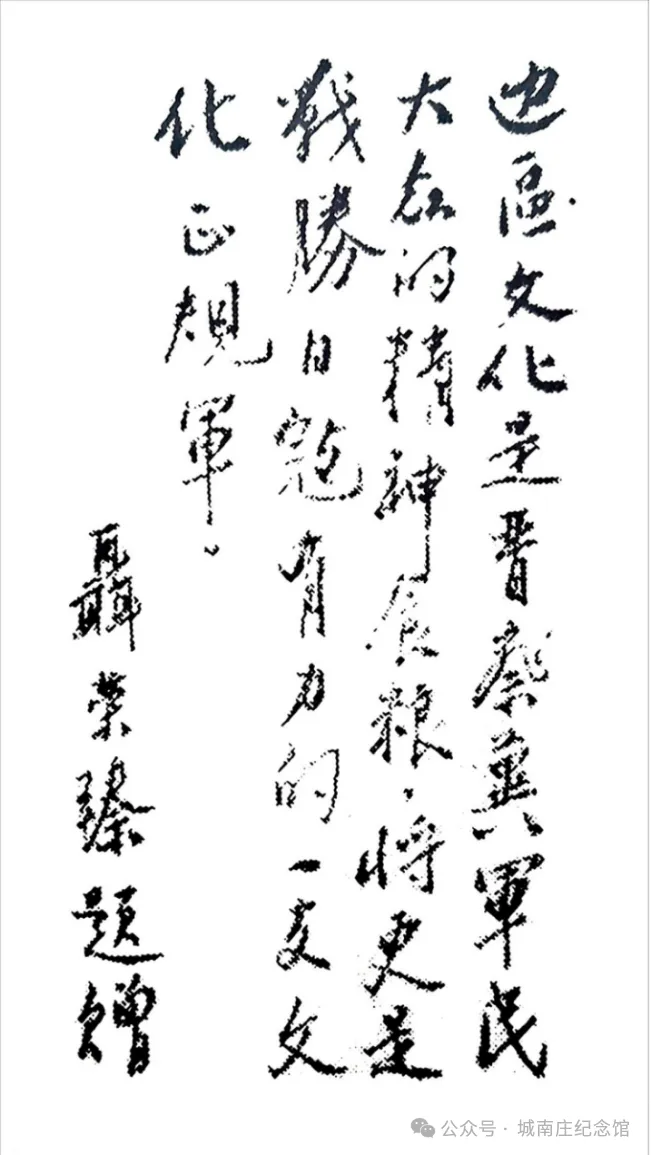 边區文化是晋察冀軍民
大众的精神食粮，将更是
戰勝日寇有力的一支文
化正規軍。
聶荣臻題贈
公众号·城南庄纪念馆